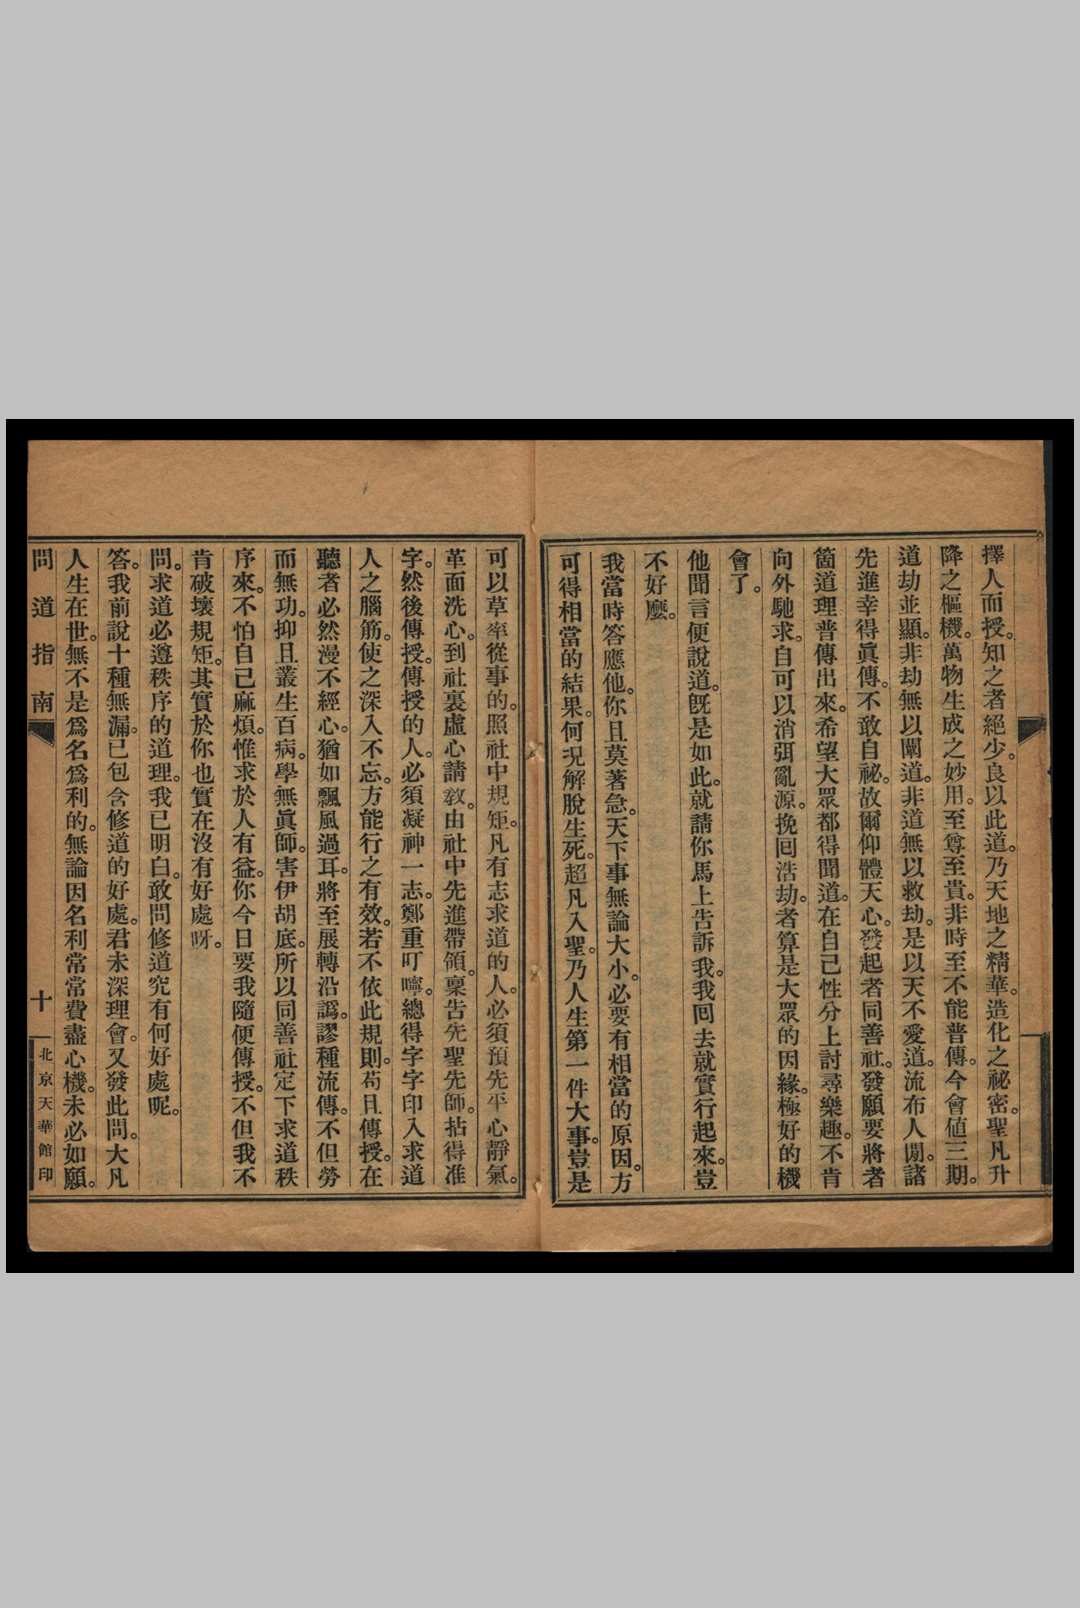 擇人而授。知之者絕少。良以此道。乃天地之精華。造化之祕密。聖凡升
降之樞機。萬物生成之妙用。至尊至貴。非時至不能普傳。今會値三期。
道劫並顯。非劫無以闡道。非道無以救劫。是以天不愛道。流布人間。諸
先進幸得眞傳。不敢自祕。故爾仰體天心。發起者同善社。發願要將者
箇道理普傳出來。希望大眾都得聞道。在自己性分上討尋樂趣。不肯
向外馳求。自可以消弭亂源。挽回浩劫。者算是大眾的因緣。極好的機
會了。
他聞言便說道。旣是如此。就請你馬上告訴我。我回去就實行起來。豈
不好麽。
我當時答應他。你且莫著急。天下事無論大小。必要有相當的原因。方
可得相當的結果。何况解脫生死。超凡入聖。乃人生第一件大事。豈是
可以草率從事的。照社中規矩。凡有志求道的人。必須預先平心靜氣。
革面洗心。到社裏虛心請敎。由社中先進帶領。稟告先聖先師。拈得准
字。然後傳授。傳授的人。必須凝神一志。鄭重叮嚀。總得字字印入求道
人之腦筋。使之深入不忘。方能行之有效。若不依此規則。苟且傳授。在
聽者必然漫不經心。猶如飄風過耳。將至展轉沿譌。謬種流傳。不但勞
而無功。抑且叢生百病。學無眞師。害伊胡底。所以同善社定下求道秩
序來。不怕自己麻煩。惟求於人有益。你今日要我隨便傳授。不但我不
肯破壞規矩。其實於你也實在沒有好處呀。
問。求道必遵秩序的道理。我已明白。敢問修道究有何好處呢。
答。我前說十種無漏。已包含修道的好處。君未深理會。又發此問。大凡
人生在世。無不是爲名爲利的。無論因名利常常費盡心機。未必如願。
問道指南
十
北京天華館印